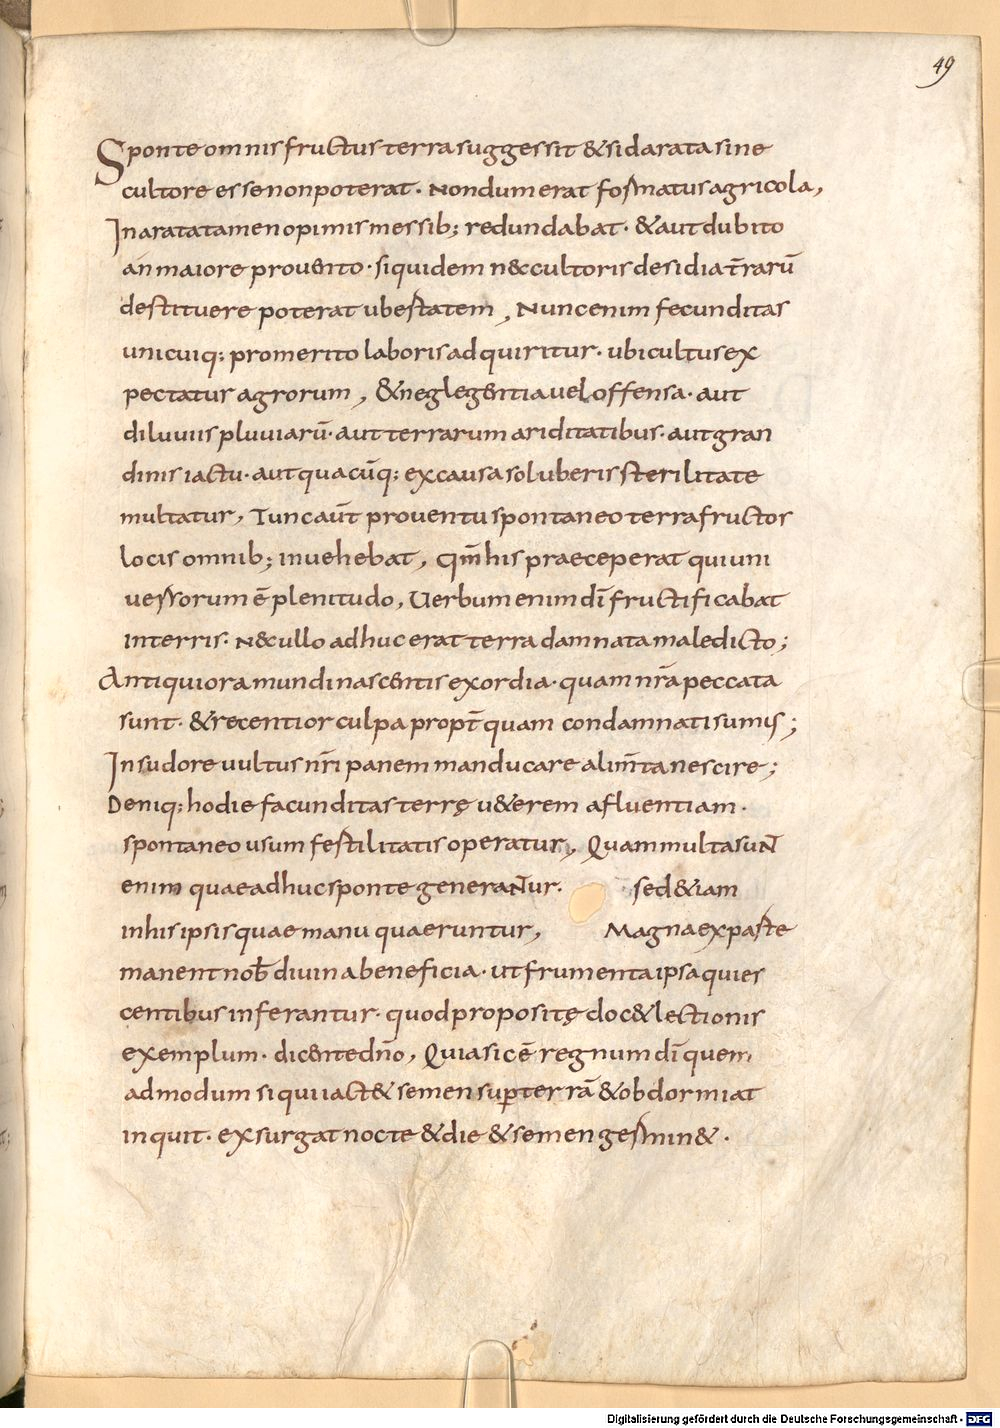 49
Sponte omnis fructus terra suggessit & si d arata sine
cultore esse non poterat. Nondum erat formatus agricola,
Inarata tamen opimis messib; redundabat. & aut dubito
an maiore prouento. siquidem n&cultoris desidia t̄rarū
destituere poterat ubertatem, Nunc enim fecunditas
unicuiq; pro merito laboris adquiritur. ubi cultus ex
pectatur agrorum, & neglegentia uel offensa. aut
diluuiis pluuiarū. aut terrarum ariditatibus. aut gran
dinis iactu. aut quacūq; ex causa soluberis sterilitate
multatur, Tunc aūt prouentu spontaneo terra fructos
locis omnib; inuehebat, qm̄ his praeceperat qui uni
uersorum ē plenitudo, Uerbum enim dī fructificabat
in terris. N&ullo adhuc erat terra damnata maledicto;
Antiquiora mundi nascentis exordia. quam nr̄a peccata
sunt. & recentior culpa propt̄ quam condamnati sumus;
In sudore uultus nr̄i panem manducare alim̄ta nescire;
Deniq; hodie facunditas terrę u&erem afluentiam.
spontaneo usum fertilitatis operatur, Quam multa suNT
enim quae adhuc sponte generaNTur. sed &iam
in his ipsis quae manu quaeruntur, Magna ex parte
manent nob̄ diuina beneficia. ut frumenta ipsa quies
centibus inferantur. quod propositę doc& lectionis
exemplum. dicente dn̄o, Quia sic ē regnum dī quem
admodum si qui iact& semen sup terrā & obdormiat
inquit. exsurgat nocte & die & semen germin&.
Digitalisierung gefördert durch die Deutsche Forschungsgemeinschaft - DFG